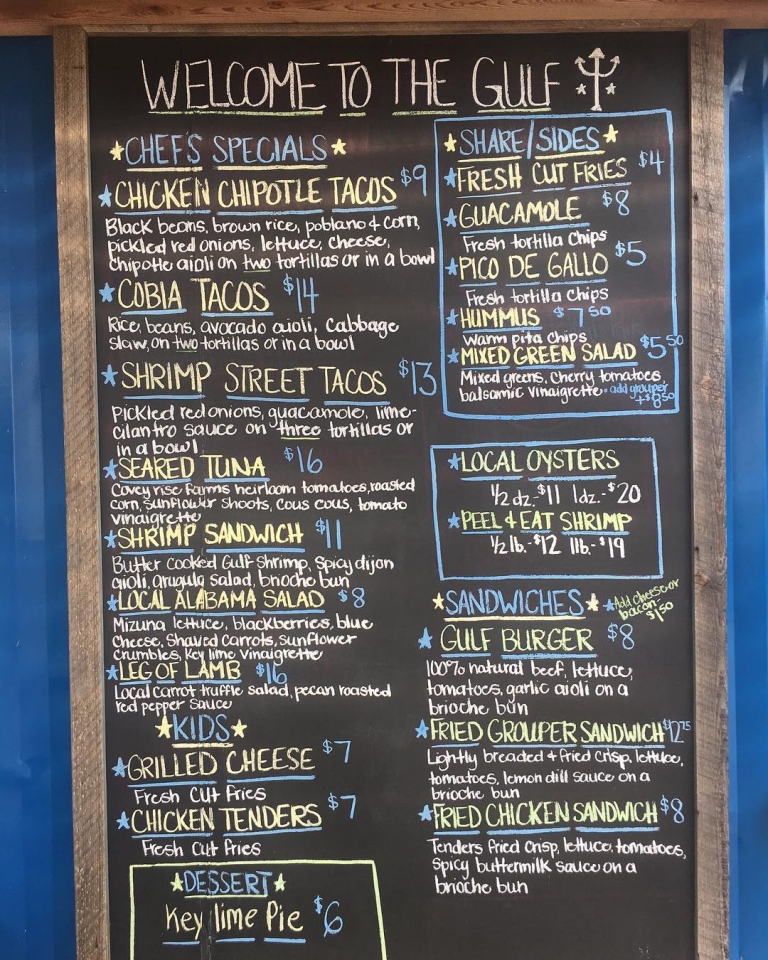 WELCOME TO THE GULF
CHEFS SPECIALS
CHICKEN CHIPOTLE TACOS $9
Black beans, brown rice, poblano & corn,
pickled red onions, lettuce, cheese,
Chipotle aioli on two tortillas or in a bowl
COBIA TACOS $14
Rice, beans, avocado aioli, Cabbage
slaw, on two tortillas or in a bowl
SHRIMP STREET TACOS $13
Pickled red onions, guacamole, lime-
cilantro sauce on three tortillas or
in a bowl
SEARED TUNA $16
Covey rise Farms heirloom tomatoes, roasted
corn, sunflower shoots, cous cous, tomato
vinaigrette
SHRIMP SANDWICH $11
Butter cooked Gulf Shrimp, Spicy dijon
aioli, arugula salad, brioche bun
LOCAL ALABAMA SALAD $8
Mizuna lettuce, blackberries, blue
Cheese, Shaved Carrots, sunflower
Crumbles, Key lime vinaigrette
LEG OF LAMB $16
Local carrot truffle salad, pecan roasted
red pepper Sauce
KIDS
GRILLED CHEESE $7
Fresh Cut fries
CHICKEN TENDERS $7
Fresh Cut fries
DESSERT
Key lime Pie $6
SHARE/SIDES
FRESH CUT FRIES $4
GUACAMOLE $8
Fresh tortilla Chips
PICO DE GALLO $5
Fresh tortilla Chips
HUMMUS $7.50
Warm pita Chips
MIXED GREEN SALAD $5.50
Mixed greens, Cherry tomatoes,
balsamic vinaigrette - add grouper
+$8.50
LOCAL OYSTERS
1/2 dz.-$11 1dz.-$20
PEEL & EAT SHRIMP
1/2 lb.-$12 1lb.-$19
SANDWICHES *Add Cheese or
bacon-
$1.50
GULF BURGER $8
100% natural beef, lettuce,
tomatoes, garlic aioli on a
brioche bun
FRIED GROUPER SANDWICH $12.75
Lightly breaded & fried Crisp, lettuce,
tomatoes, lemon dill sauce on a
brioche bun
FRIED CHICKEN SANDWICH $8
Tenders fried crisp, lettuce, tomatoes,
spicy buttermilk sauce on a
brioche bun